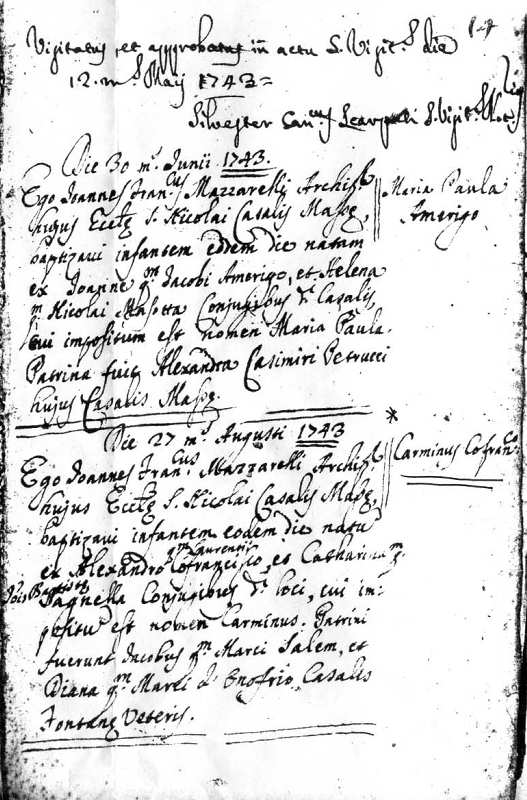 14
Visitatus, et approbatus in actu S. Visit.s die
12. m.s Maij 1743 =
Silvester Can.cus S. Visit.
Die 30 m.s Junii 1743.
Ego Joannes Fran.cus Mazzarelli Archip.r
Maria Paula
hujus Eccl[ę] S. Nicolai Casalis Massę,
Amerigo
baptizavi infantem eodem die natam
ex Joanne q.m Jacobi Amerigo, et Helena
q.m Nicolai Masotta Conjugibus d.i Casalis,
cui impositum est nomen Maria Paula.
Patrina fuit Alexandra Casimiri Petrucci
hujus Casalis Massę.
*
Die 27 m.s Augusti 1743
Ego Joannes Fran.cus Mazzarelli Archip.r
Carminus Cofran.co
hujus Eccl[ę] S. Nicolai Casalis Massę,
baptizavi infantem eodem die natu
q.m Laurentii
ex Alexandro Cofrancisco, et Catharina q.m
Jois Baptistę
Pagnella Conjugibus d.i loci, cui im:
positu est nomen Carminus. Patrini
fuerunt Jacobus q.m Marci Salem, et
Diana q.m Marci d' Onofrio Casalis
Fontanę Veteris.